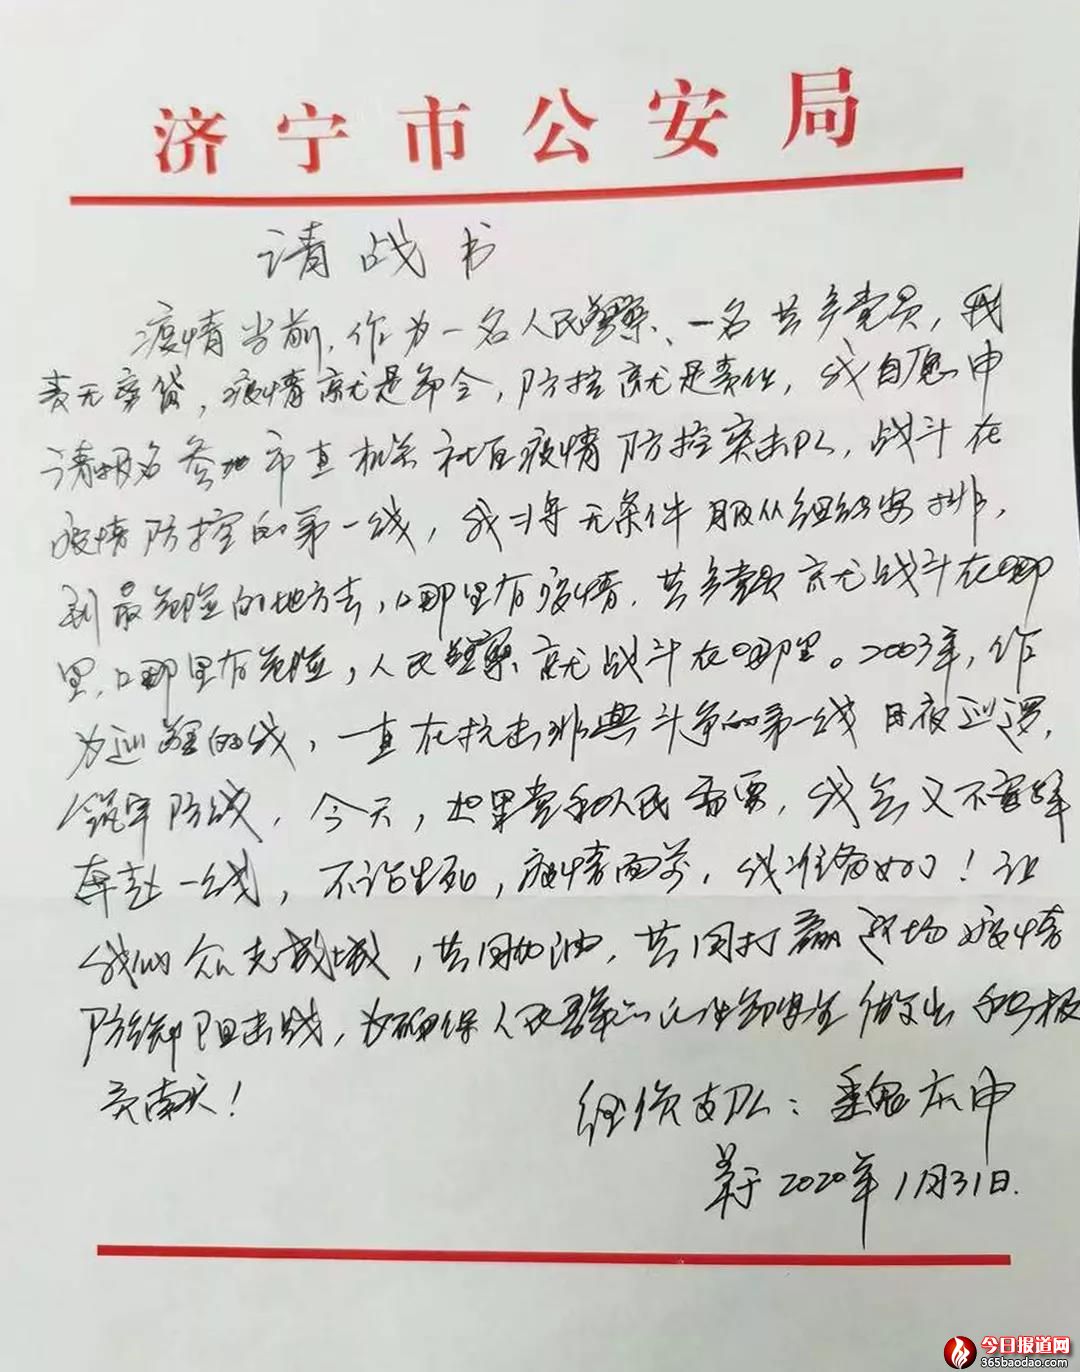 济宁市公安局
请战书
疫情当前，作为一名人民警察、一名共产党员，我
责无旁贷，疫情就是命令，防控就是责任，我自愿申
请报名参加市直机关社区疫情防控突击队，战斗在
疫情防控的第一线，我将无条件服从组织安排，
到最危险的地方去，哪里有疫情，共产党员就战斗在哪
里，哪里有危险，人民警察就战斗在哪里。2003年，作
为巡警的我，一直在抗击非典斗争的第一线日夜巡逻，
筑牢防线，今天，如果党和人民需要，我会义不容辞
奔赴一线，不论生死，疫情面前，我准备好了！让
我们众志成城，共同加油，共同打赢这场疫情
防御阻击战，为确保人民群众的健康安全做出积极
贡献！
经侦支队：魏庆申
2020年1月31日.
今日报道网
365baodao.com